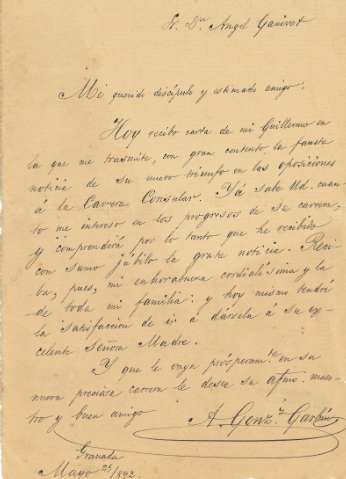 Sr. Dn. Angel Ganivet
Mi querido discípulo y estimado amigo.
Hoy recibo carta de mi Guillermo en
la que me trasmite, con gran contento la fausta
noticia de su nuevo triunfo en las oposiciones
á la Carrera Consular. Ya sabe Ud. cuan-
to me intereso en los progresos de su carrera,
y comprenderá por lo tanto que he recibido
con sumo júbilo la grata noticia. Reci-
ba, pues, mi enhorabuena cordialísima y la
de toda mi familia: y hoy mismo tendré
la satisfacción de ir á dársela á su ex-
celente Señora Madre.
Y que le vaya prósperamte. en su
nueva preciosa carrera le desea su afmo. maes-
tro y buen amigo
A. Gonzz. Garbín
Granada
Mayo 25/892.